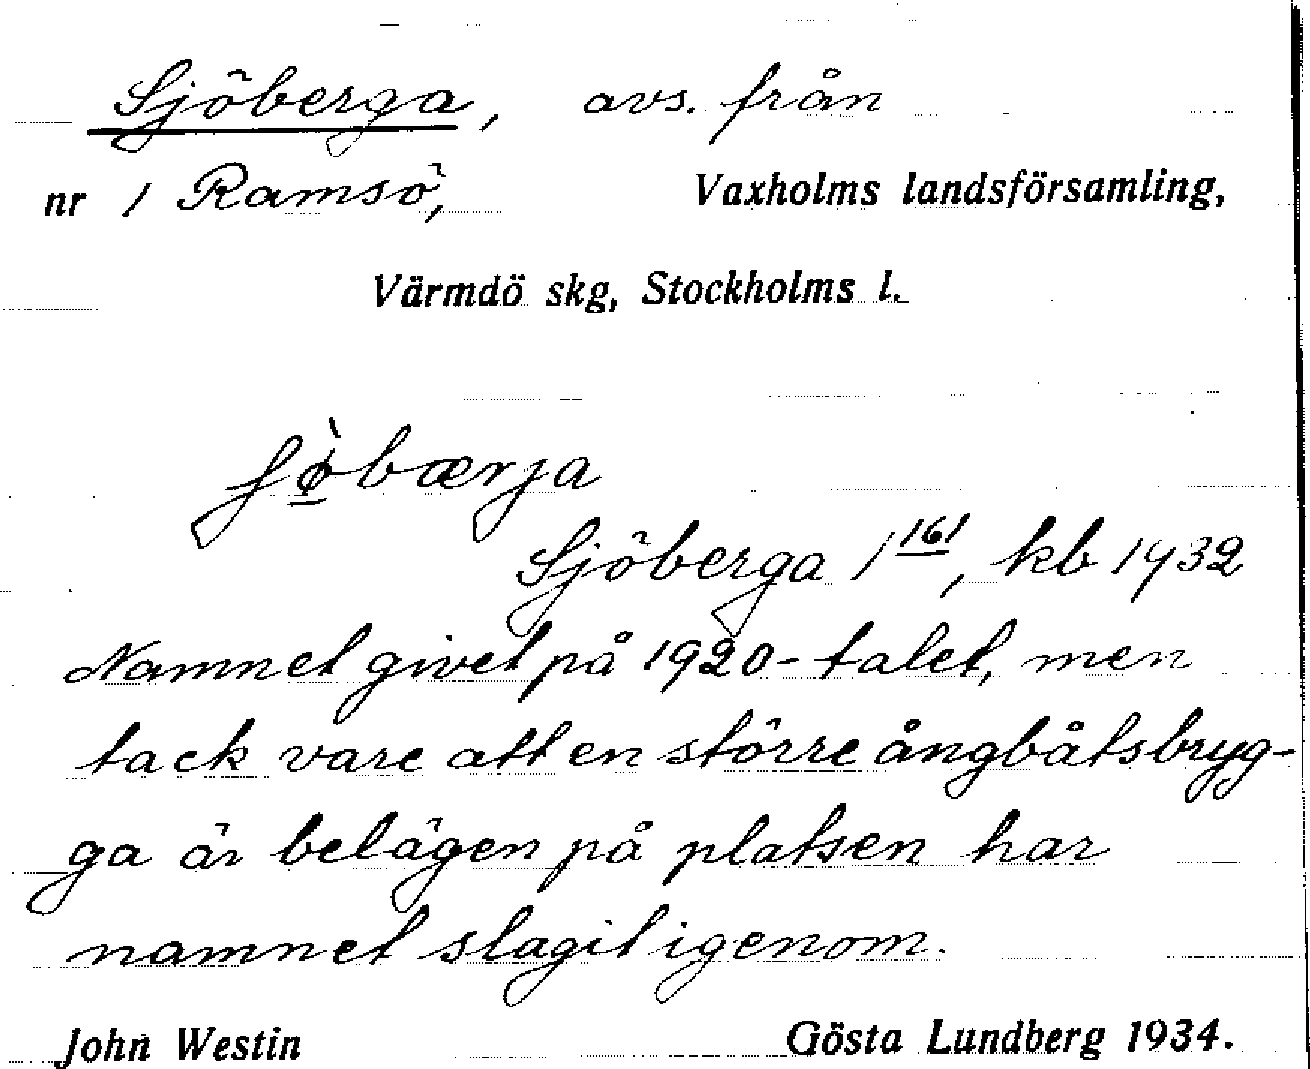 Sjöberga, avs. från
nr 1 Ramsö, Vaxholms landsförsamling,
Värmdö skg, Stockholms l.
ʃø̀bærja
Sjöberga 1¹⁶¹, kb 1932
Namnet givet på 1920-talet, men
tack vare att en större ångbåtsbryg-
ga är belägen på platsen har
namnet slagit igenom.
John Westin Gösta Lundberg 1934.